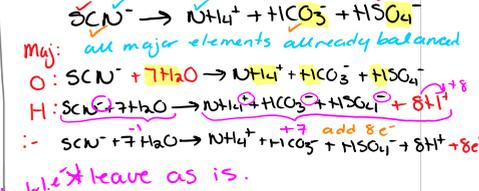 SCN⁻ → NH4⁺ + HCO3⁻ + HSO4⁻
Maj: all major elements allready balanced
O: SCN⁻ + 7H2O → NH4⁺ + HCO3⁻ + HSO4⁻
H: SCN⁻ + 7H2O → NH4⁺ + HCO3⁻ + HSO4⁻ + 8H⁺ +8
-1 +7 add 8e⁻
:- SCN⁻ + 7H2O → NH4⁺ + HCO3⁻ + HSO4⁻ + 8H⁺ + 8e
* leave as is.